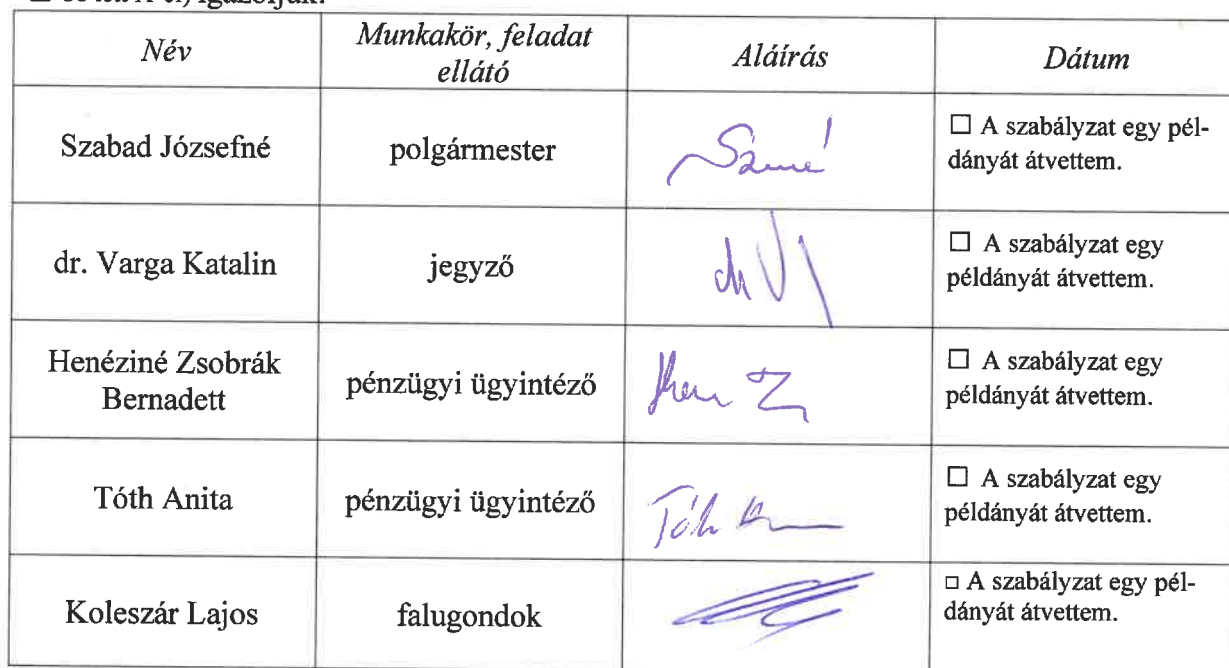 igazoljuk.
Név
Munkakör, feladat
ellátó
Aláírás
Dátum
Szabad Józsefné
polgármester
☐ A szabályzat egy pél-
dányát átvettem.
dr. Varga Katalin
jegyző
☐ A szabályzat egy
példányát átvettem.
Henéziné Zsobrák
Bernadett
pénzügyi ügyintéző
☐ A szabályzat egy
példányát átvettem.
Tóth Anita
pénzügyi ügyintéző
Tóth
☐ A szabályzat egy
példányát átvettem.
Koleszár Lajos
falugondok
☐ A szabályzat egy pél-
dányát átvettem.